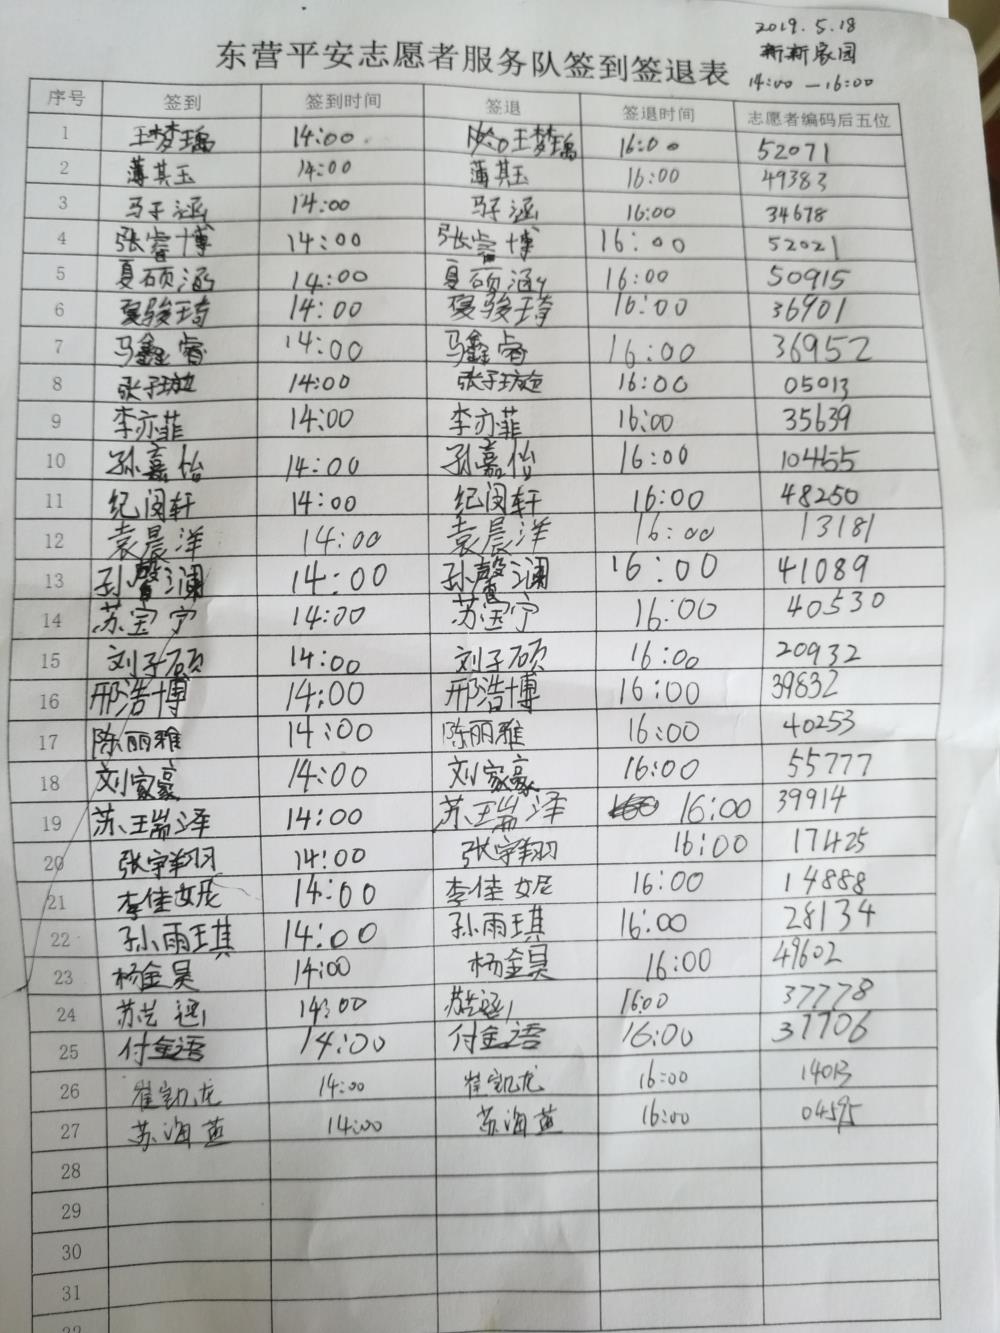 2019.5.18
东营平安志愿者服务队签到签退表
新新家园
14:00 —16:00
序号 签到 签到时间 签退 签退时间 志愿者编码后五位
1 王梦瑀 14:00 王梦瑀 16:00 52071
2 薄其玉 14:00 薄其玉 16:00 49383
3 马子涵 14:00 马子涵 16:00 34678
4 张睿博 14:00 张睿博 16:00 52021
5 夏硕涵 14:00 夏硕涵 16:00 50915
6 夏骏琦 14:00 夏骏琦 16:00 36901
7 马鑫睿 14:00 马鑫睿 16:00 36952
8 张子璇 14:00 张子璇 16:00 05013
9 李亦菲 14:00 李亦菲 16:00 35639
10 孙嘉怡 14:00 孙嘉怡 16:00 10455
11 纪闵轩 14:00 纪闵轩 16:00 48250
12 袁晨洋 14:00 袁晨洋 16:00 13181
13 孙馨澜 14:00 孙馨澜 16:00 41089
14 苏宝宁 14:00 苏宝宁 16:00 40530
15 刘子硕 14:00 刘子硕 16:00 20932
16 邢浩博 14:00 邢浩博 16:00 39832
17 陈丽雅 14:00 陈丽雅 16:00 40253
18 刘家豪 14:00 刘家豪 16:00 55777
19 苏瑞泽 14:00 苏瑞泽 16:00 39914
20 张宇翔 14:00 张宇翔 16:00 17425
21 李佳妮 14:00 李佳妮 16:00 14888
22 孙雨琪 14:00 孙雨琪 16:00 28134
23 杨金昊 14:00 杨金昊 16:00 49602
24 苏艺涵 14:00 苏艺涵 16:00 37778
25 付金语 14:00 付金语 16:00 37706
26 崔凯龙 14:00 崔凯龙 16:00 14013
27 苏海燕 14:00 苏海燕 16:00 04595
28
29
30
31